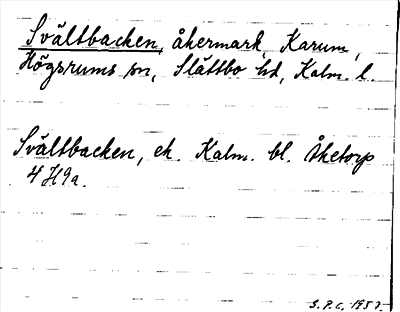 Svältbacken, åkermark, Karum,
Högsrums sn, Slättbo hd, Kalm. l.
Svältbacken, ek. Kalm. bl. Åketorp
4H9a.
S.P.C. 1957.